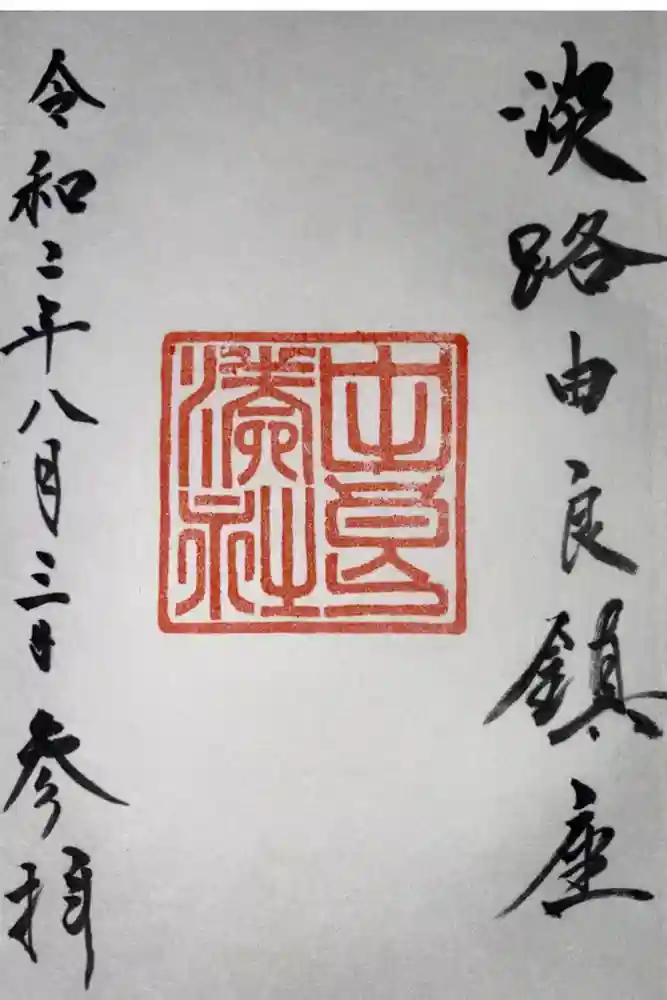 淡路由良鎮座
由良
湊社
令和二年八月三日参拝